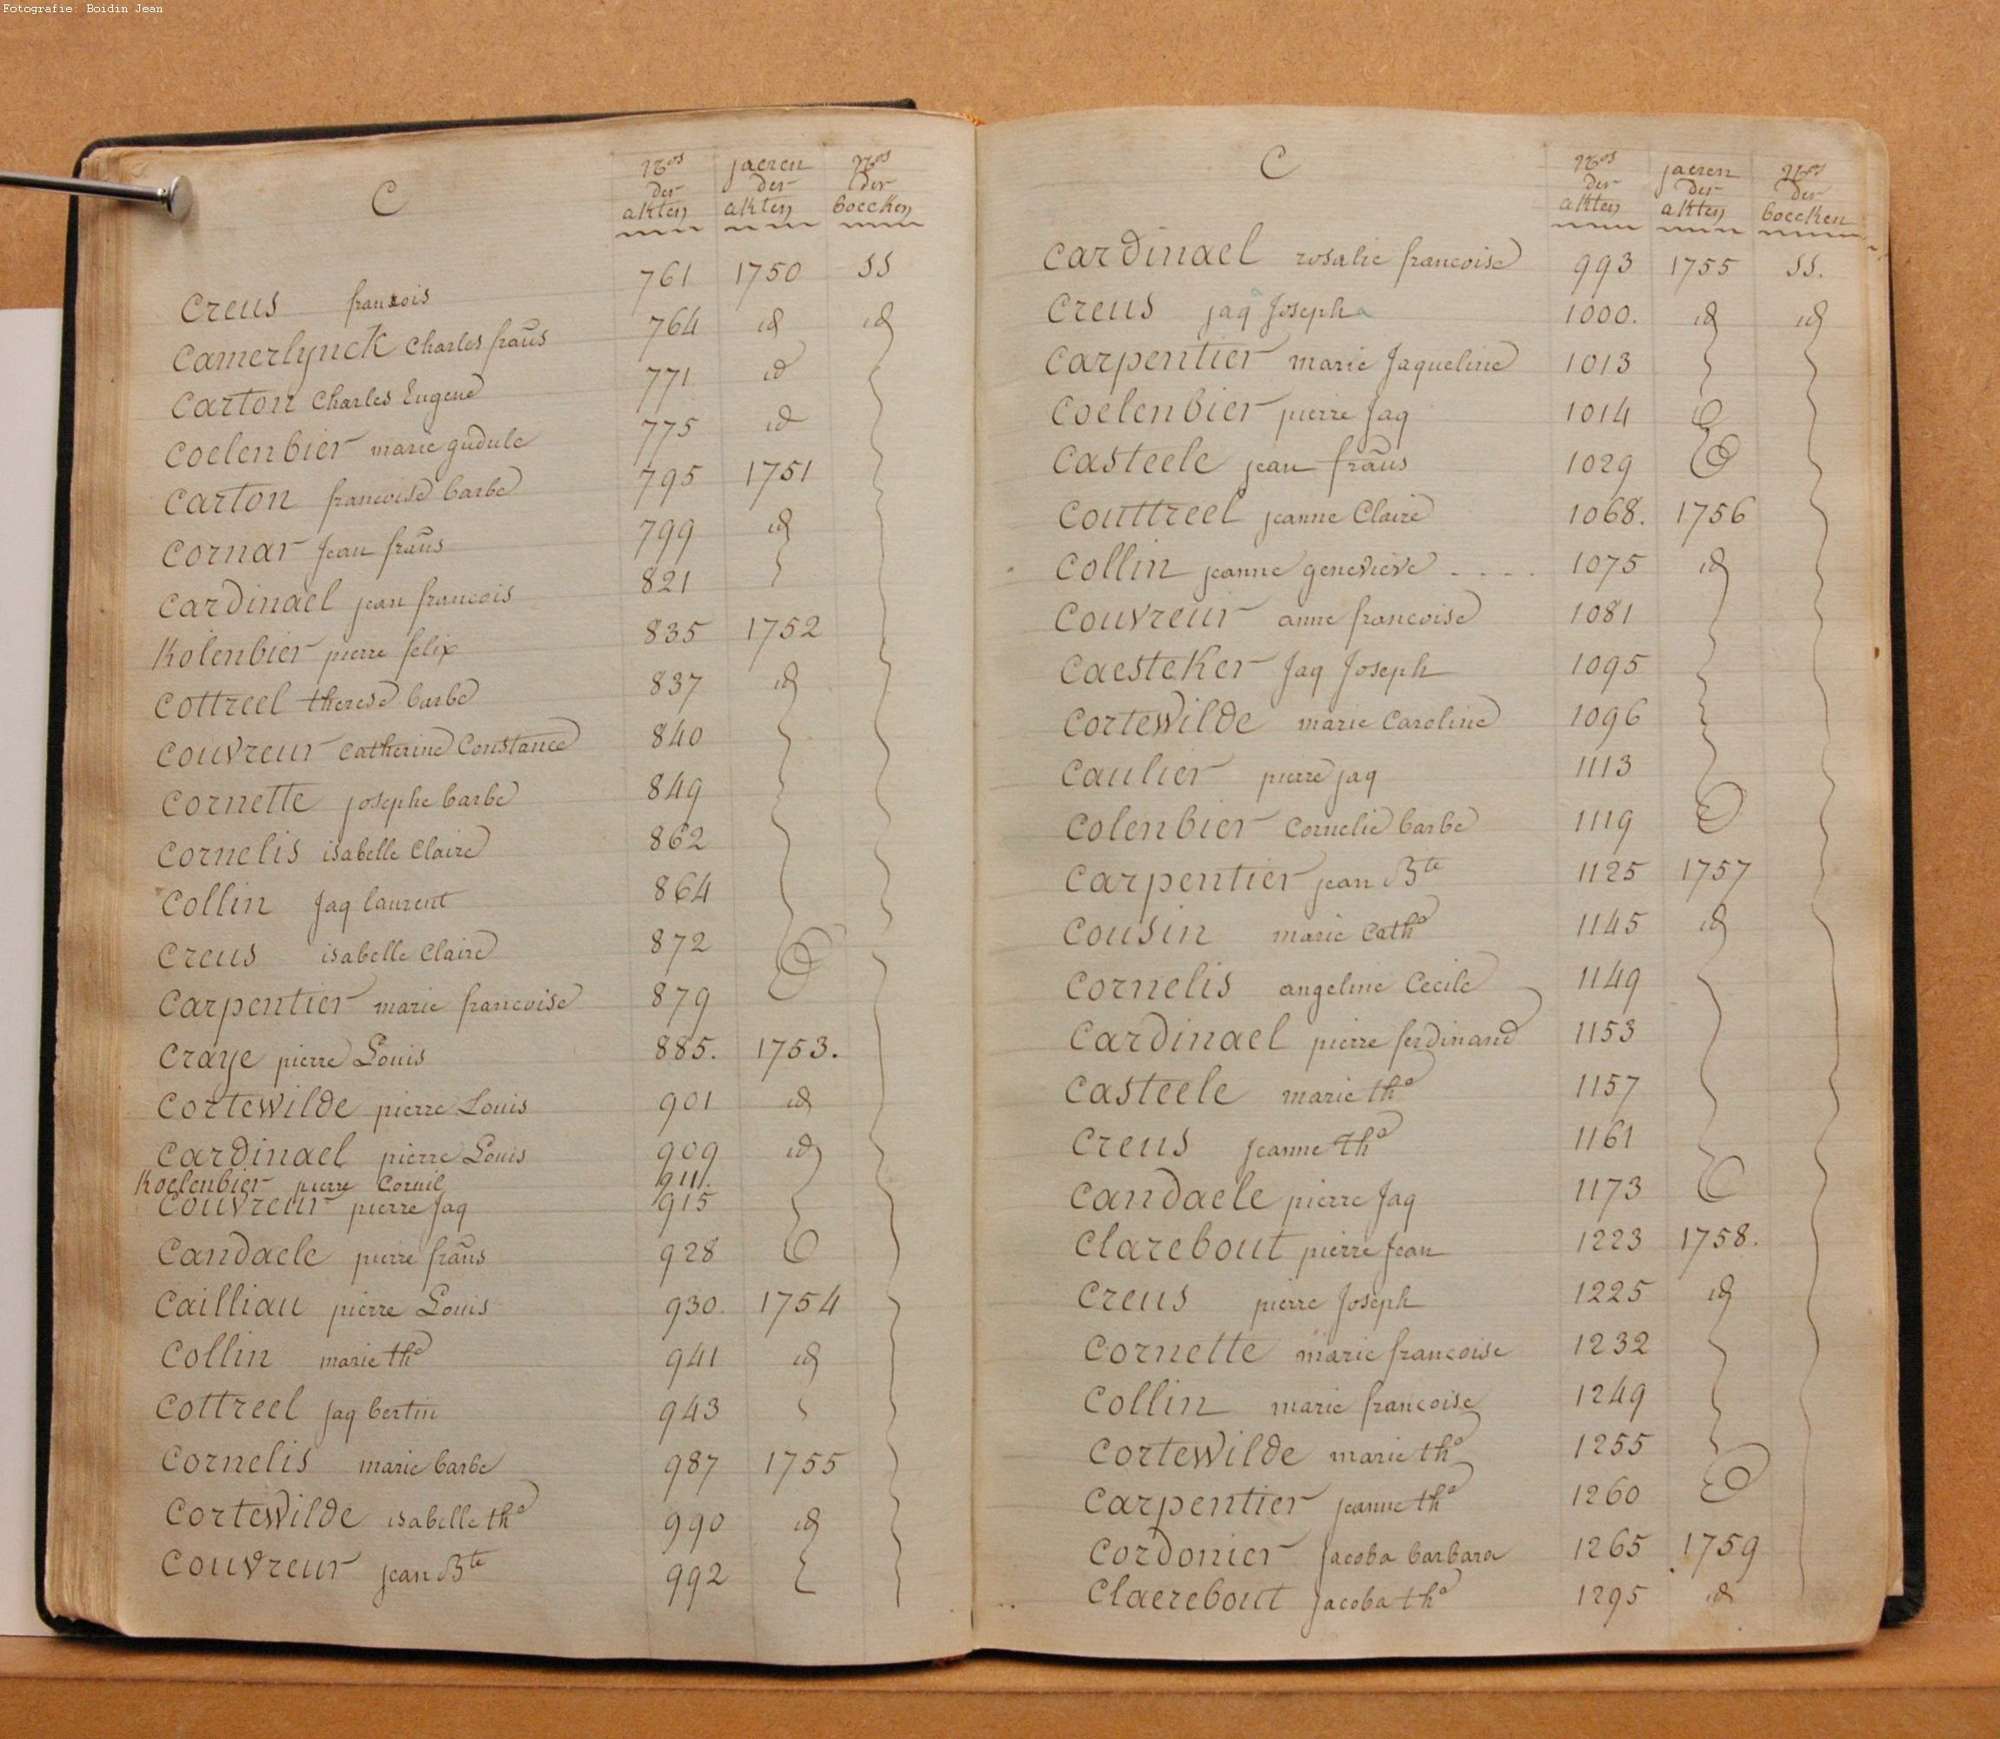 Fotografie: Boidin Jean
C
Nros der akten
jaeren der akten
Nros der boecken
Creus francois 761 1750 SS
Camerlynck Charles fraus 764 id id
Carton Charles Eugene 771 id
Coelenbier marie gudule 775 id
Carton francoise barbe 795 1751
Cornar Jean fraus 799 id
Cardinael jean francois 821
Kolenbier pierre felix 835 1752
Cottreel therese barbe 837 id
Couvreur Catherine Constance 840
Cornette josephe barbe 849
Cornelis isabelle Claire 862
Collin Jaq laurent 864
Creus isabelle Claire 872
Carpentier marie francoise 879
Craye pierre Louis 885. 1753.
Cortewilde pierre Louis 901 id
Cardinael pierre Louis 909 id
Koelenbier pierre Cornil 911.
Couvreur pierre Jaq 915
Candaele pierre fraus 928
Cailliau pierre Louis 930. 1754
Collin marie the 941 id
Cottreel Jaq bertin 943
Cornelis marie barbe 987 1755
Cortewilde isabelle the 990 id
Couvreur jean Bte 992
C
Nros der akten
jaeren der akten
Nros der boecken
Cardinael rosalie francoise 993 1755 SS.
Creus jaqa Josepha 1000. id id
Carpentier marie Jaqueline 1013
Coelenbier pierre Jaq 1014
Casteele jean fraus 1029
Couttreel jeanne Claire 1068. 1756
Collin jeanne genevieve - - - - 1075 id
Couvreur anne francoise 1081
Caesteker Jaq Joseph 1095
Cortewilde marie Caroline 1096
Caulier pierre jaq 1113
Colenbier Cornelie barbe 1119
Carpentier jean Bte 1125 1757
Cousin marie Cathe 1145 id
Cornelis angeline Cecile 1149
Cardinael pierre ferdinand 1153
Casteele marie the 1157
Creus Jeanne the 1161
Candaele pierre Jaq 1173
Clarebout pierre Jean 1223 1758.
Creus pierre Joseph 1225 id
Cornette marie francoise 1232
Collin marie francoise 1249
Cortewilde marie the 1255
Carpentier jeanne the 1260
Cordonier Jacoba barbara 1265 1759
Claerebout Jacoba tha 1295 id